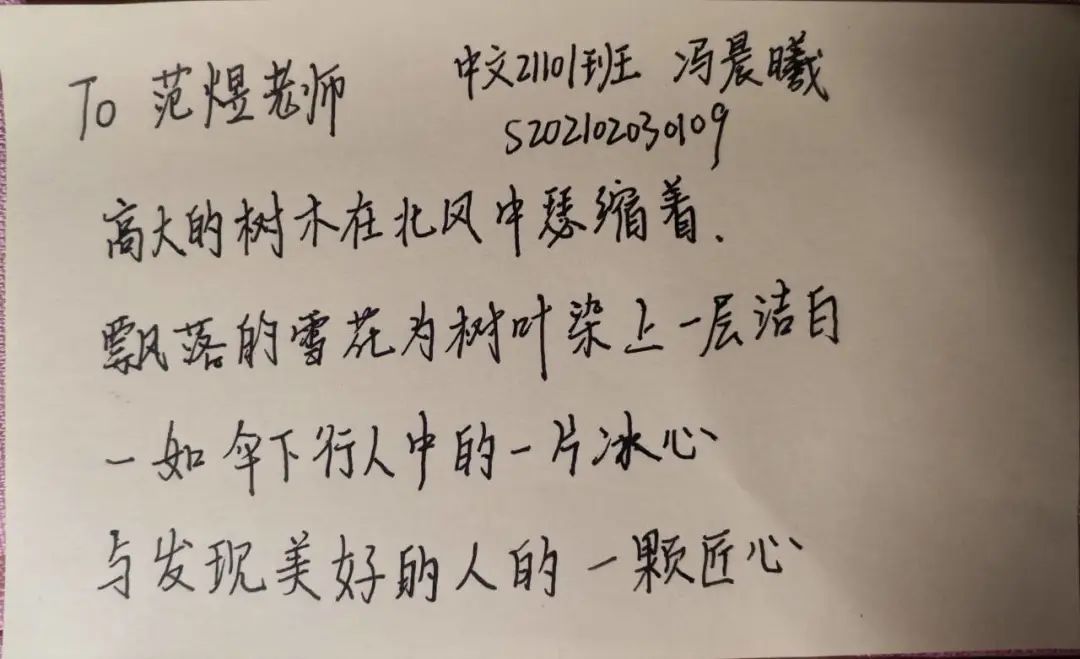 To 范煜老师
中文21101班 冯晨曦
S202102030109
高大的树木在北风中瑟缩着.
飘落的雪花为树叶染上一层洁白
一如伞下行人中的一片冰心
与发现美好的人的一颗匠心